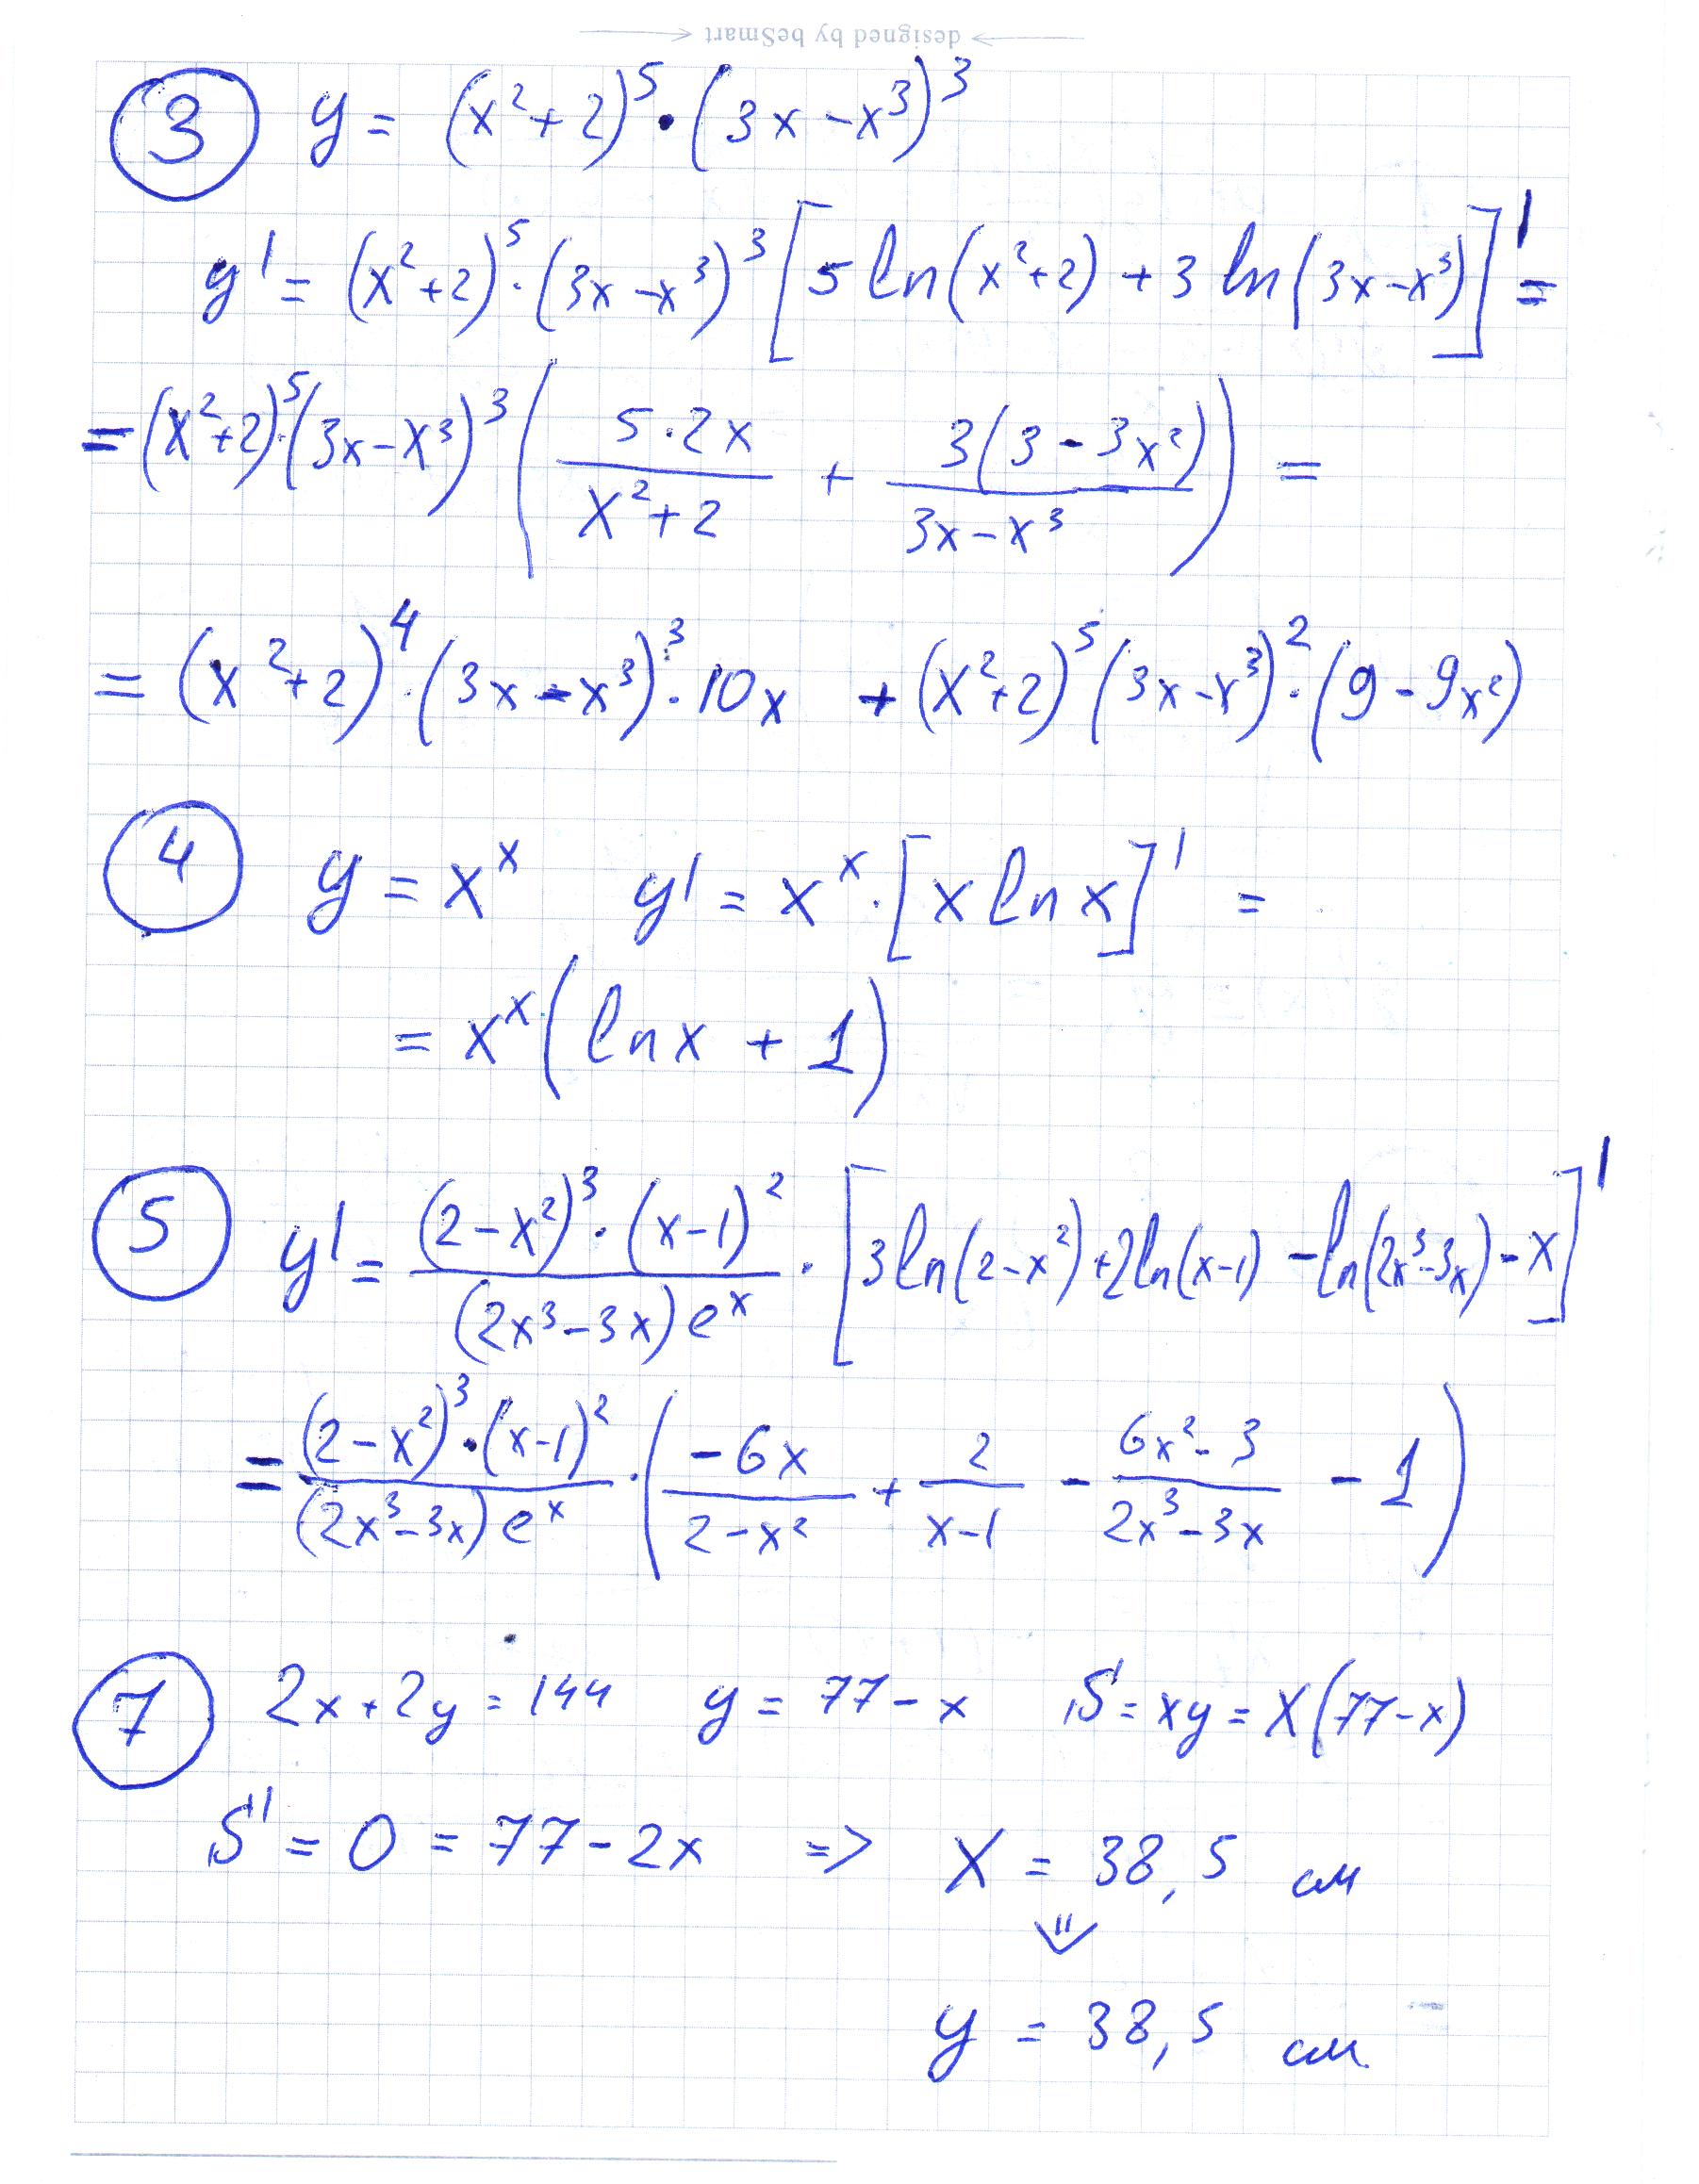 designed by beSmart
③ y = (x²+2)⁵ · (3x − x³)³
y' = (x²+2)⁵ · (3x − x³)³ [5 ln(x²+2) + 3 ln(3x − x³)]' =
= (x²+2)⁵ · (3x − x³)³ ( 5·2x / x²+2 + 3(3 − 3x²) / 3x − x³ ) =
= (x²+2)⁴ · (3x − x³)³ · 10x + (x²+2)⁵ (3x − x³)² · (9 − 9x²)
④ y = xˣ y' = xˣ · [x ln x]' =
= xˣ (ln x + 1)
⑤ y' = (2 − x²)³ · (x−1)² / (2x³ − 3x) eˣ · [3 ln(2 − x²) + 2 ln(x−1) − ln(2x³ − 3x) − x]'
= (2 − x²)³ · (x−1)² / (2x³ − 3x) eˣ · ( −6x / 2 − x² + 2 / x−1 − 6x² − 3 / 2x³ − 3x − 1 )
⑦ 2x + 2y = 144 y = 77 − x S = xy = x(77 − x)
S' = 0 = 77 − 2x => x = 38,5 см
⇓
y = 38,5 см